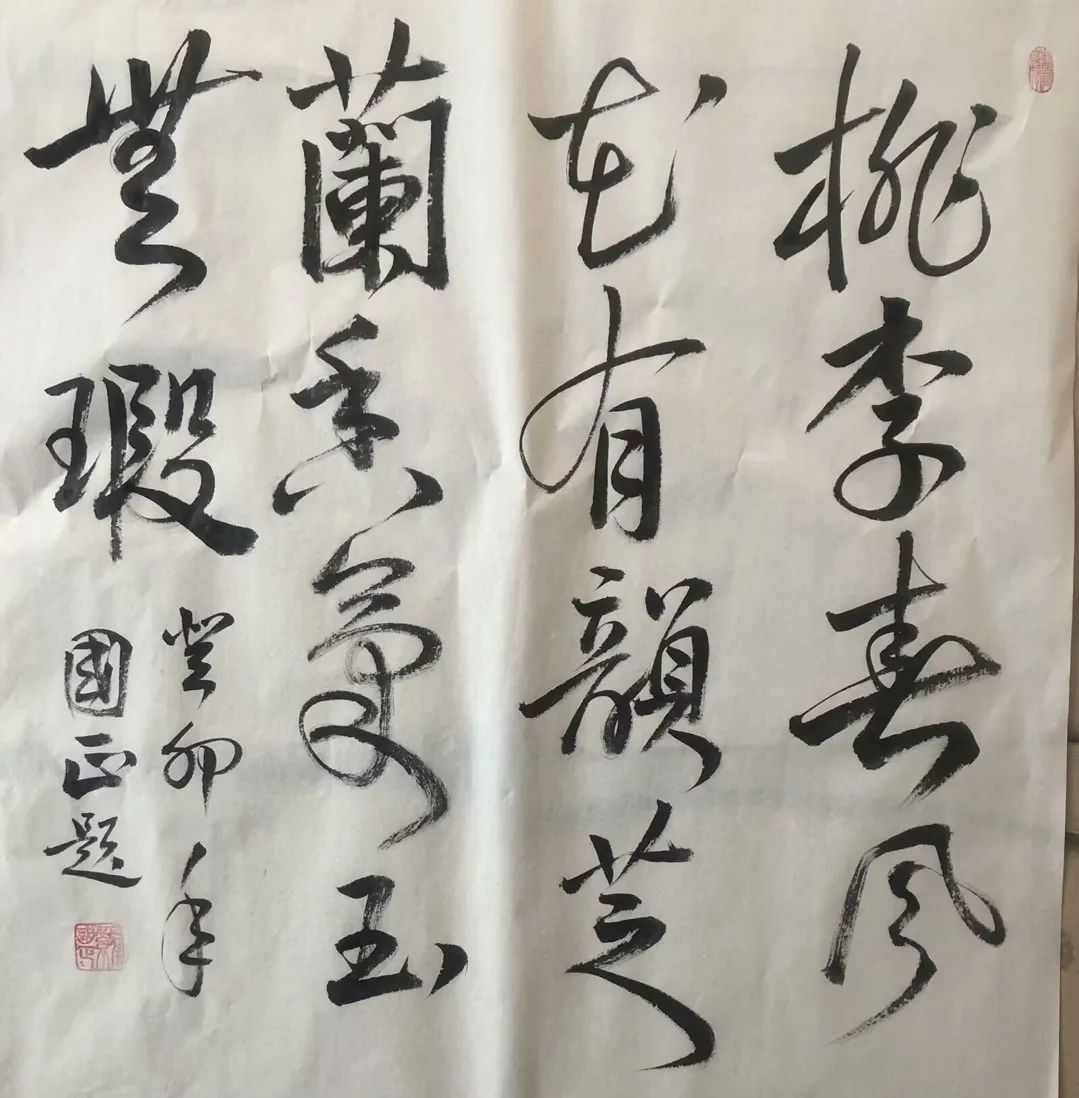 桃李春风
花有韻芝
蘭香玉
無瑕
癸卯年
國正題